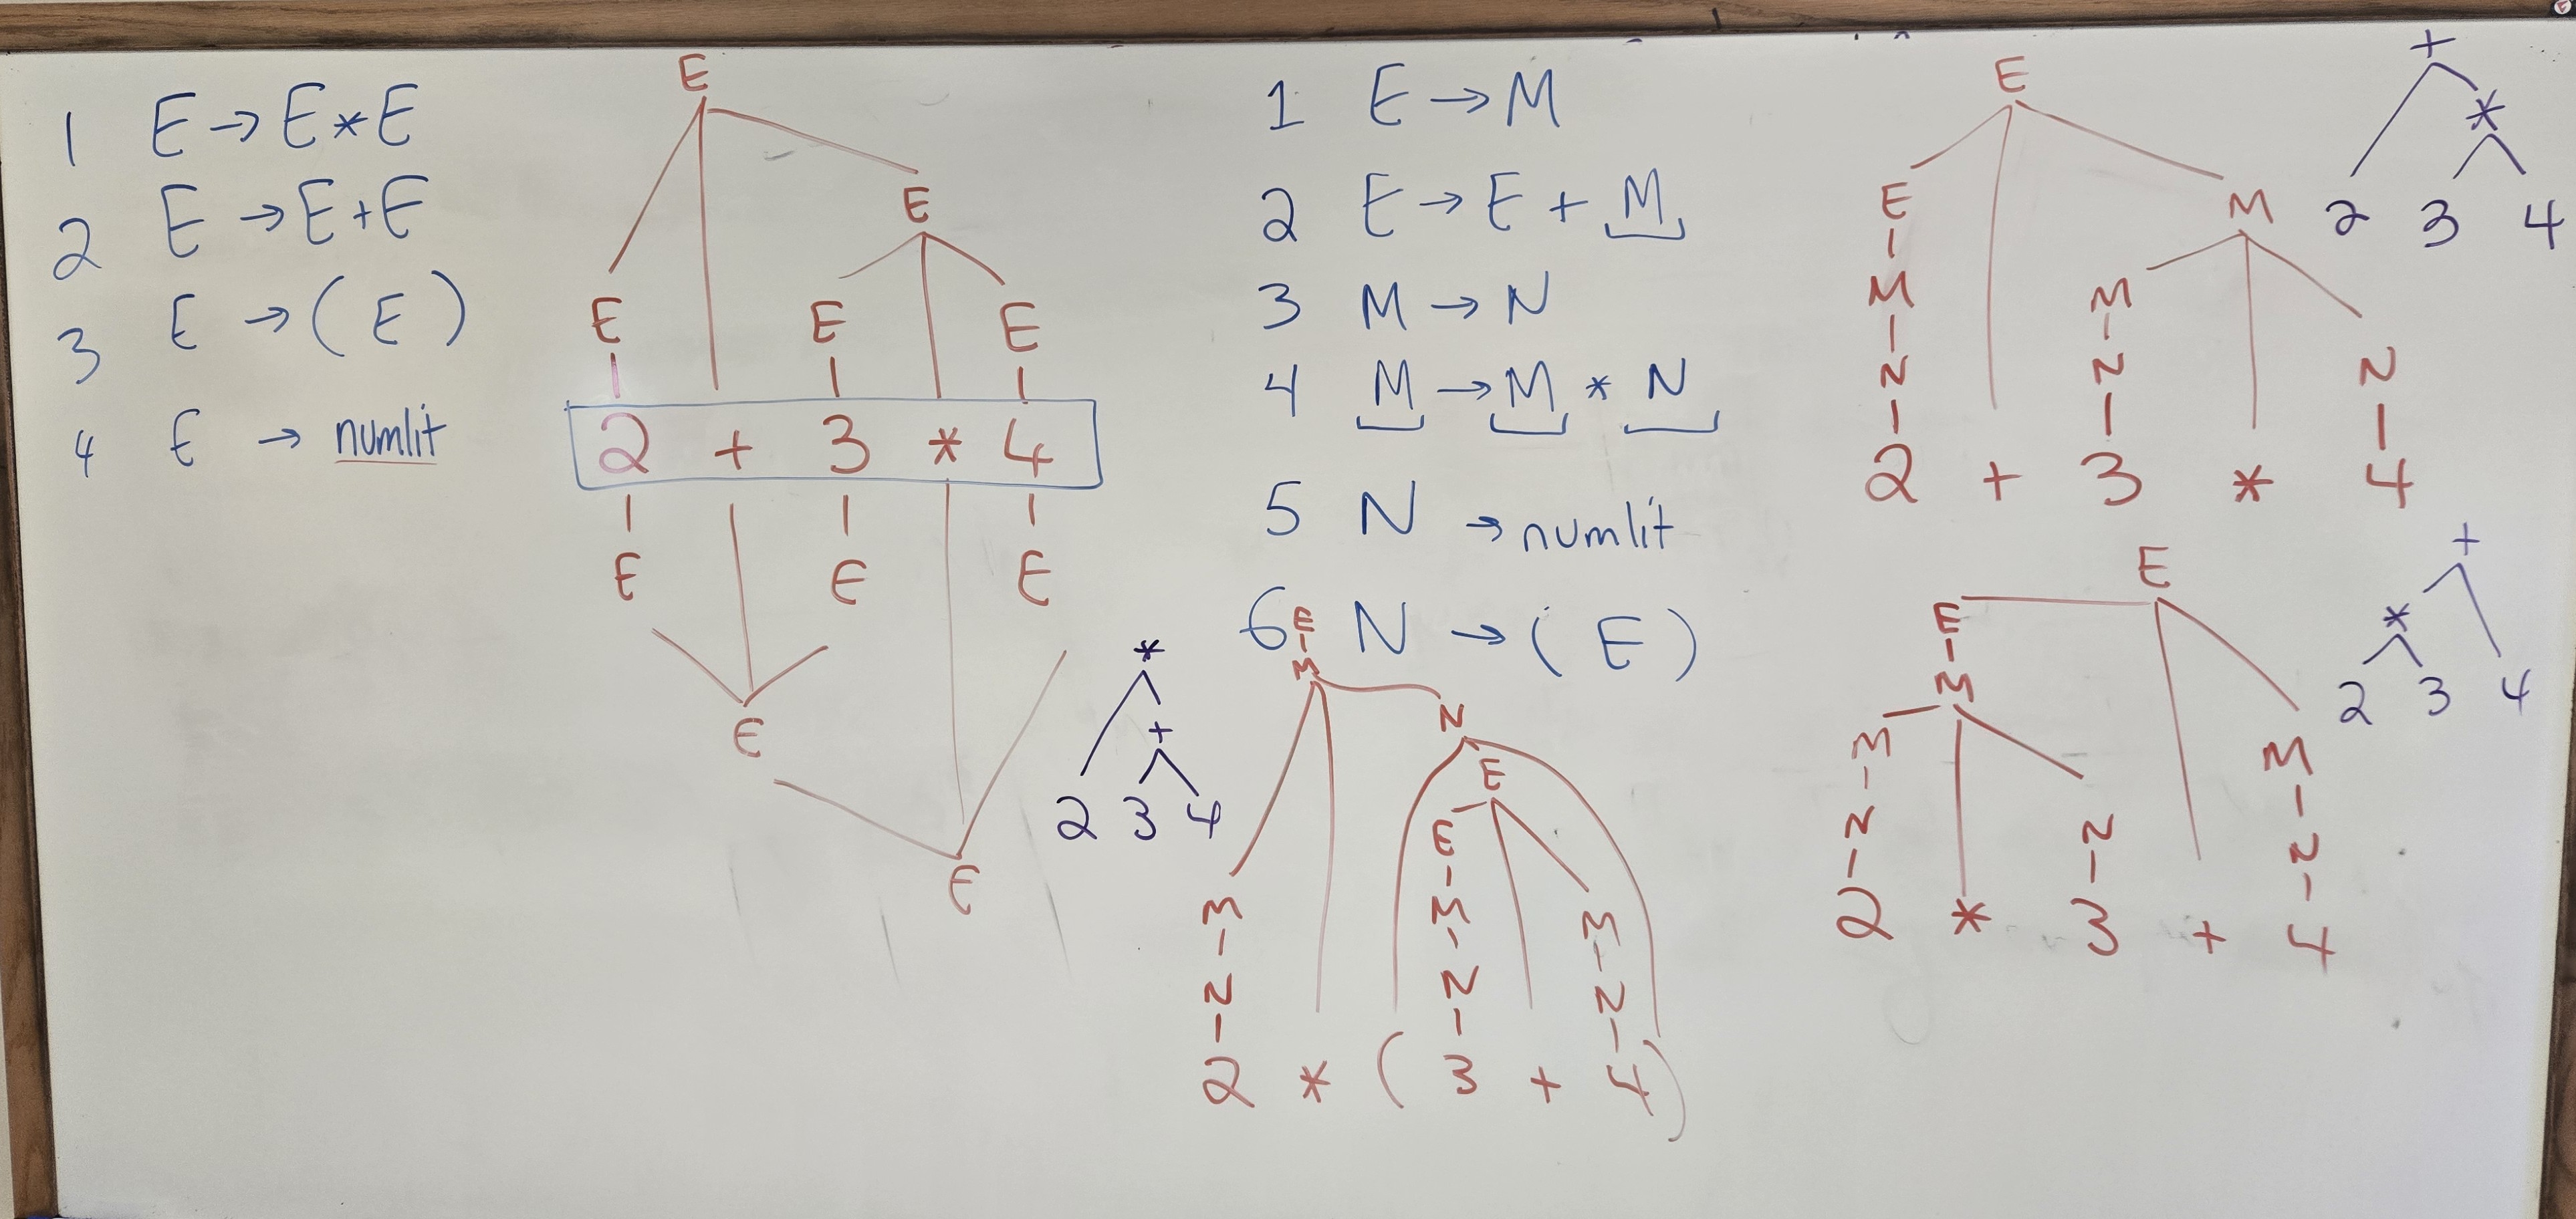 1 E → E * E
2 E → E + E
3 E → ( E )
4 E → numlit
E
E
E E E
2 + 3 * 4
E E E
E
E
*
+
2 3 4
1 E → M
2 E → E + M
3 M → N
4 M → M * N
5 N → numlit
6 N → ( E )
E
M
N
E
E
M M M
N N N
2 * ( 3 + 4 )
E
E M
M M
N N N
2 + 3 * 4
+
*
2 3 4
E
E
M
M M
N N N
2 * 3 + 4
+
*
2 3 4